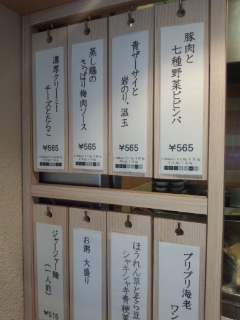 豚肉と
七種野菜ビビンバ
¥565
青ザーサイと
岩のり、温玉
¥565
蒸し鶏の
さっぱり梅肉ソース
¥565
濃厚クリーミー
チーズとたらこ
¥565
プリプリ海老
ワン
ほうれん草とそら豆
シャキシャキ青梗菜
お粥 大盛り
ジャージャー麺
(一人前)